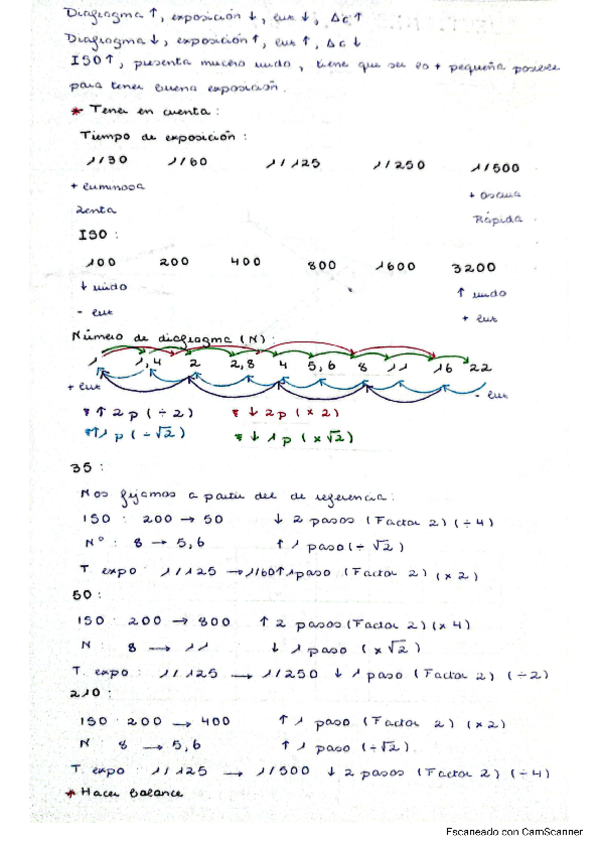 Diafragma ↑, exposición ↓, luz ↓, Δc ↑
Diafragma ↓, exposición ↑, luz ↑, Δc ↓
ISO ↑, presenta mucho ruido, tiene que ser lo + pequeña posible
para tener buena exposición.
* Tener en cuenta:
Tiempo de exposición:
1/30 1/60 1/125 1/250 1/500
+ luminosa + oscura
Lenta Rápida
ISO:
100 200 400 800 1600 3200
↓ ruido ↑ ruido
- luz + luz
Número de diafragma (N):
1 1,4 2 2,8 4 5,6 8 11 16 22
+ luz - luz
↑ 2p (÷ 2) ↓ 2p (× 2)
↑ 1p (÷ √2) ↓ 1p (× √2)
35:
Nos fijamos a partir del de referencia:
ISO: 200 → 50 ↓ 2 pasos (Factor 2) (÷4)
Nº: 8 → 5,6 ↑ 1 paso (÷ √2)
T. expo: 1/125 → 1/60 ↑ 1 paso (Factor 2) (× 2)
50:
ISO: 200 → 800 ↑ 2 pasos (Factor 2) (× 4)
N: 8 → 11 ↓ 1 paso (× √2)
T. expo: 1/125 → 1/250 ↓ 1 paso (Factor 2) (÷2)
210:
ISO: 200 → 400 ↑ 1 paso (Factor 2) (×2)
N: 8 → 5,6 ↑ 1 paso (÷√2)
T. expo: 1/125 → 1/500 ↓ 2 pasos (Factor 2) (÷4)
* Hacer balance
Escaneado con CamScanner